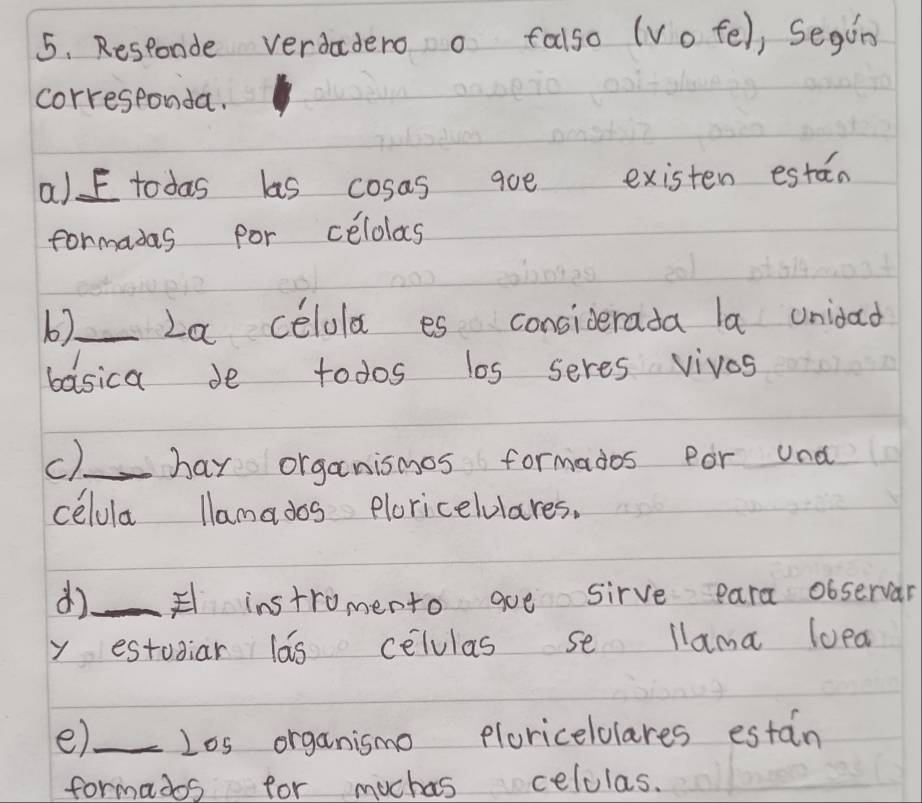 5. Responde verdadero o falso (v o fe), Según
corresponda.
a) F todas las cosas que existen están
formadas por célolas
b) ___ La célula es considerada la unidad
básica de todos los seres vivos
c) ___ hay organismos formados por una
célula llamados pluricelulares.
d) ___ El instrumento que sirve para observar
y estudiar lás células se llama lupa
e) ___ Los organismo pluricelulares están
formados por muchas celulas.